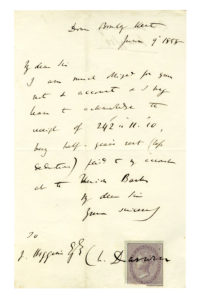 Down Bromley Kent
June 9 1858
My dear Sir
I am much obliged for your
note & account & I beg
leave to acknowledge the
receipt of 242 "11. "10,
being half-years rent (
deduction) paid to my account
at the Union Bank
My dear Sir
Yours sincerely
To
J. Higgins Esq Ch. Darwin